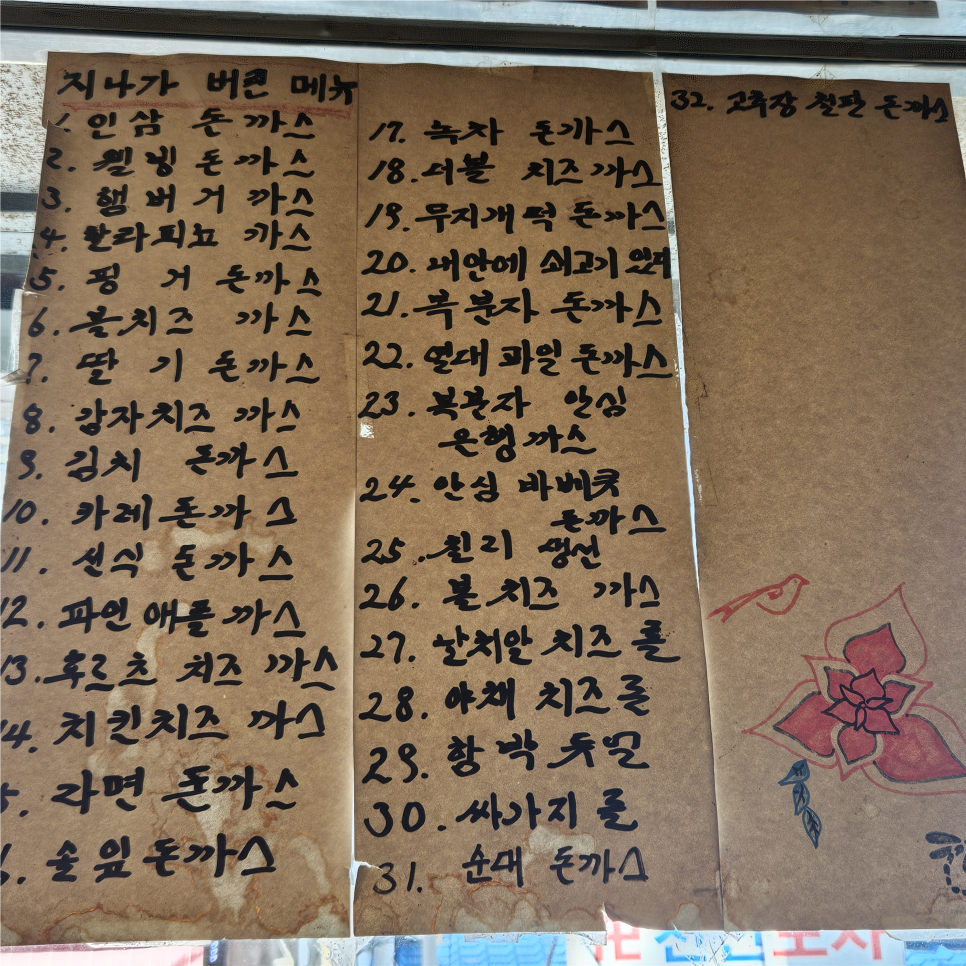 지나가 버린 메뉴
1. 인삼 돈까스
2. 웰빙돈까스
3. 햄버거 까스
4. 할라피뇨 까스
5. 핑거 돈까스
6. 볼치즈 까스
7. 딸기 돈까스
8. 감자치즈 까스
9. 김치 돈까스
10. 카레돈까스
11. 선식 돈까스
12. 파인애플까스
13. 후르츠 치즈 까스
14. 치킨치즈 까스
5. 라면 돈까스
6. 솔잎돈까스
17. 녹차 돈까스
18. 더블 치즈까스
19. 무지개떡돈까스
20. 내안에 쇠고기 있다
21. 복분자 돈까스
22. 열대과일돈까스
23. 복분자 안심
은행까스
24. 안심 바베큐
돈까스
25. 칠리 생선
26. 볼치즈 까스
27. 날치알 치즈 롤
28. 야채 치즈롤
29. 함박듀얼
30. 싸가지롤
31. 순대 돈까스
32. 고추장 철판 돈까스